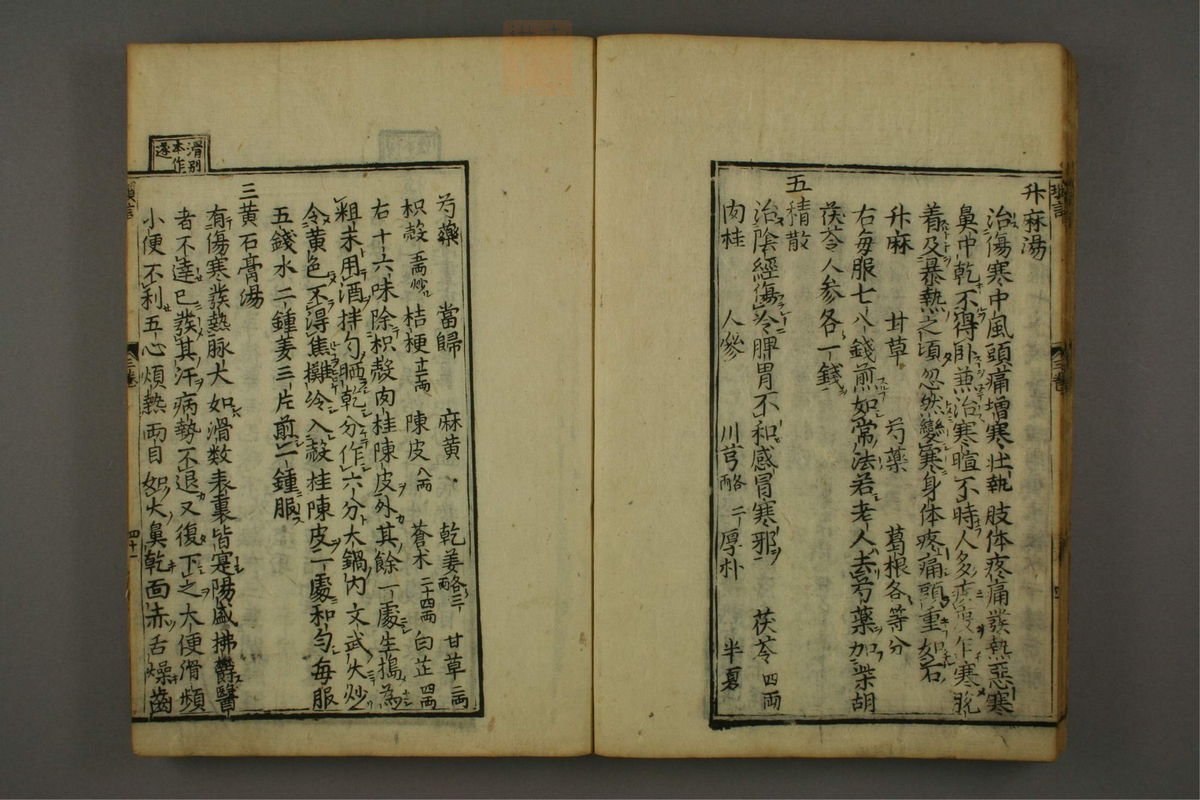 升麻湯
治傷寒中風頭痛增寒壯熱肢体疼痛發熱惡寒
鼻中乾不得卧兼治寒暄不時人多疾疫乍寒脫
着及暴熱之頃忽然變寒身体疼痛頭重如石
升麻 甘草 芍藥 葛根各等分
右每服七八錢煎如常法若老人去芍藥加柴胡
茯苓人參各一錢
五積散
治陰經傷冷脾胃不和感冒寒邪 茯苓四両
肉桂 人參 川芎各二両 厚朴 半夏
芍藥 當歸 麻黄 乾姜各三両 甘草二両
枳殻五両炒 桔梗十二両 陳皮八両 蒼朮二十四両 白芷四両
右十六味除枳殻肉桂陳皮外其餘一處生搗為
粗末用酒拌勻晒乾分作六分大鍋内文武火炒
令黄色不得焦攤冷入殻桂陳皮一處和勻每服
五錢水二鍾姜三片煎一鍾服
三黄石膏湯
有傷寒發熱脉大如滑数表裏皆実陽盛拂欝醫
者不達已發其汗病勢不退又復下之大便滑頻
小便不利五心煩熱両目如火鼻乾面赤舌燥齒
滑別
本作
遂
三巻
四十一